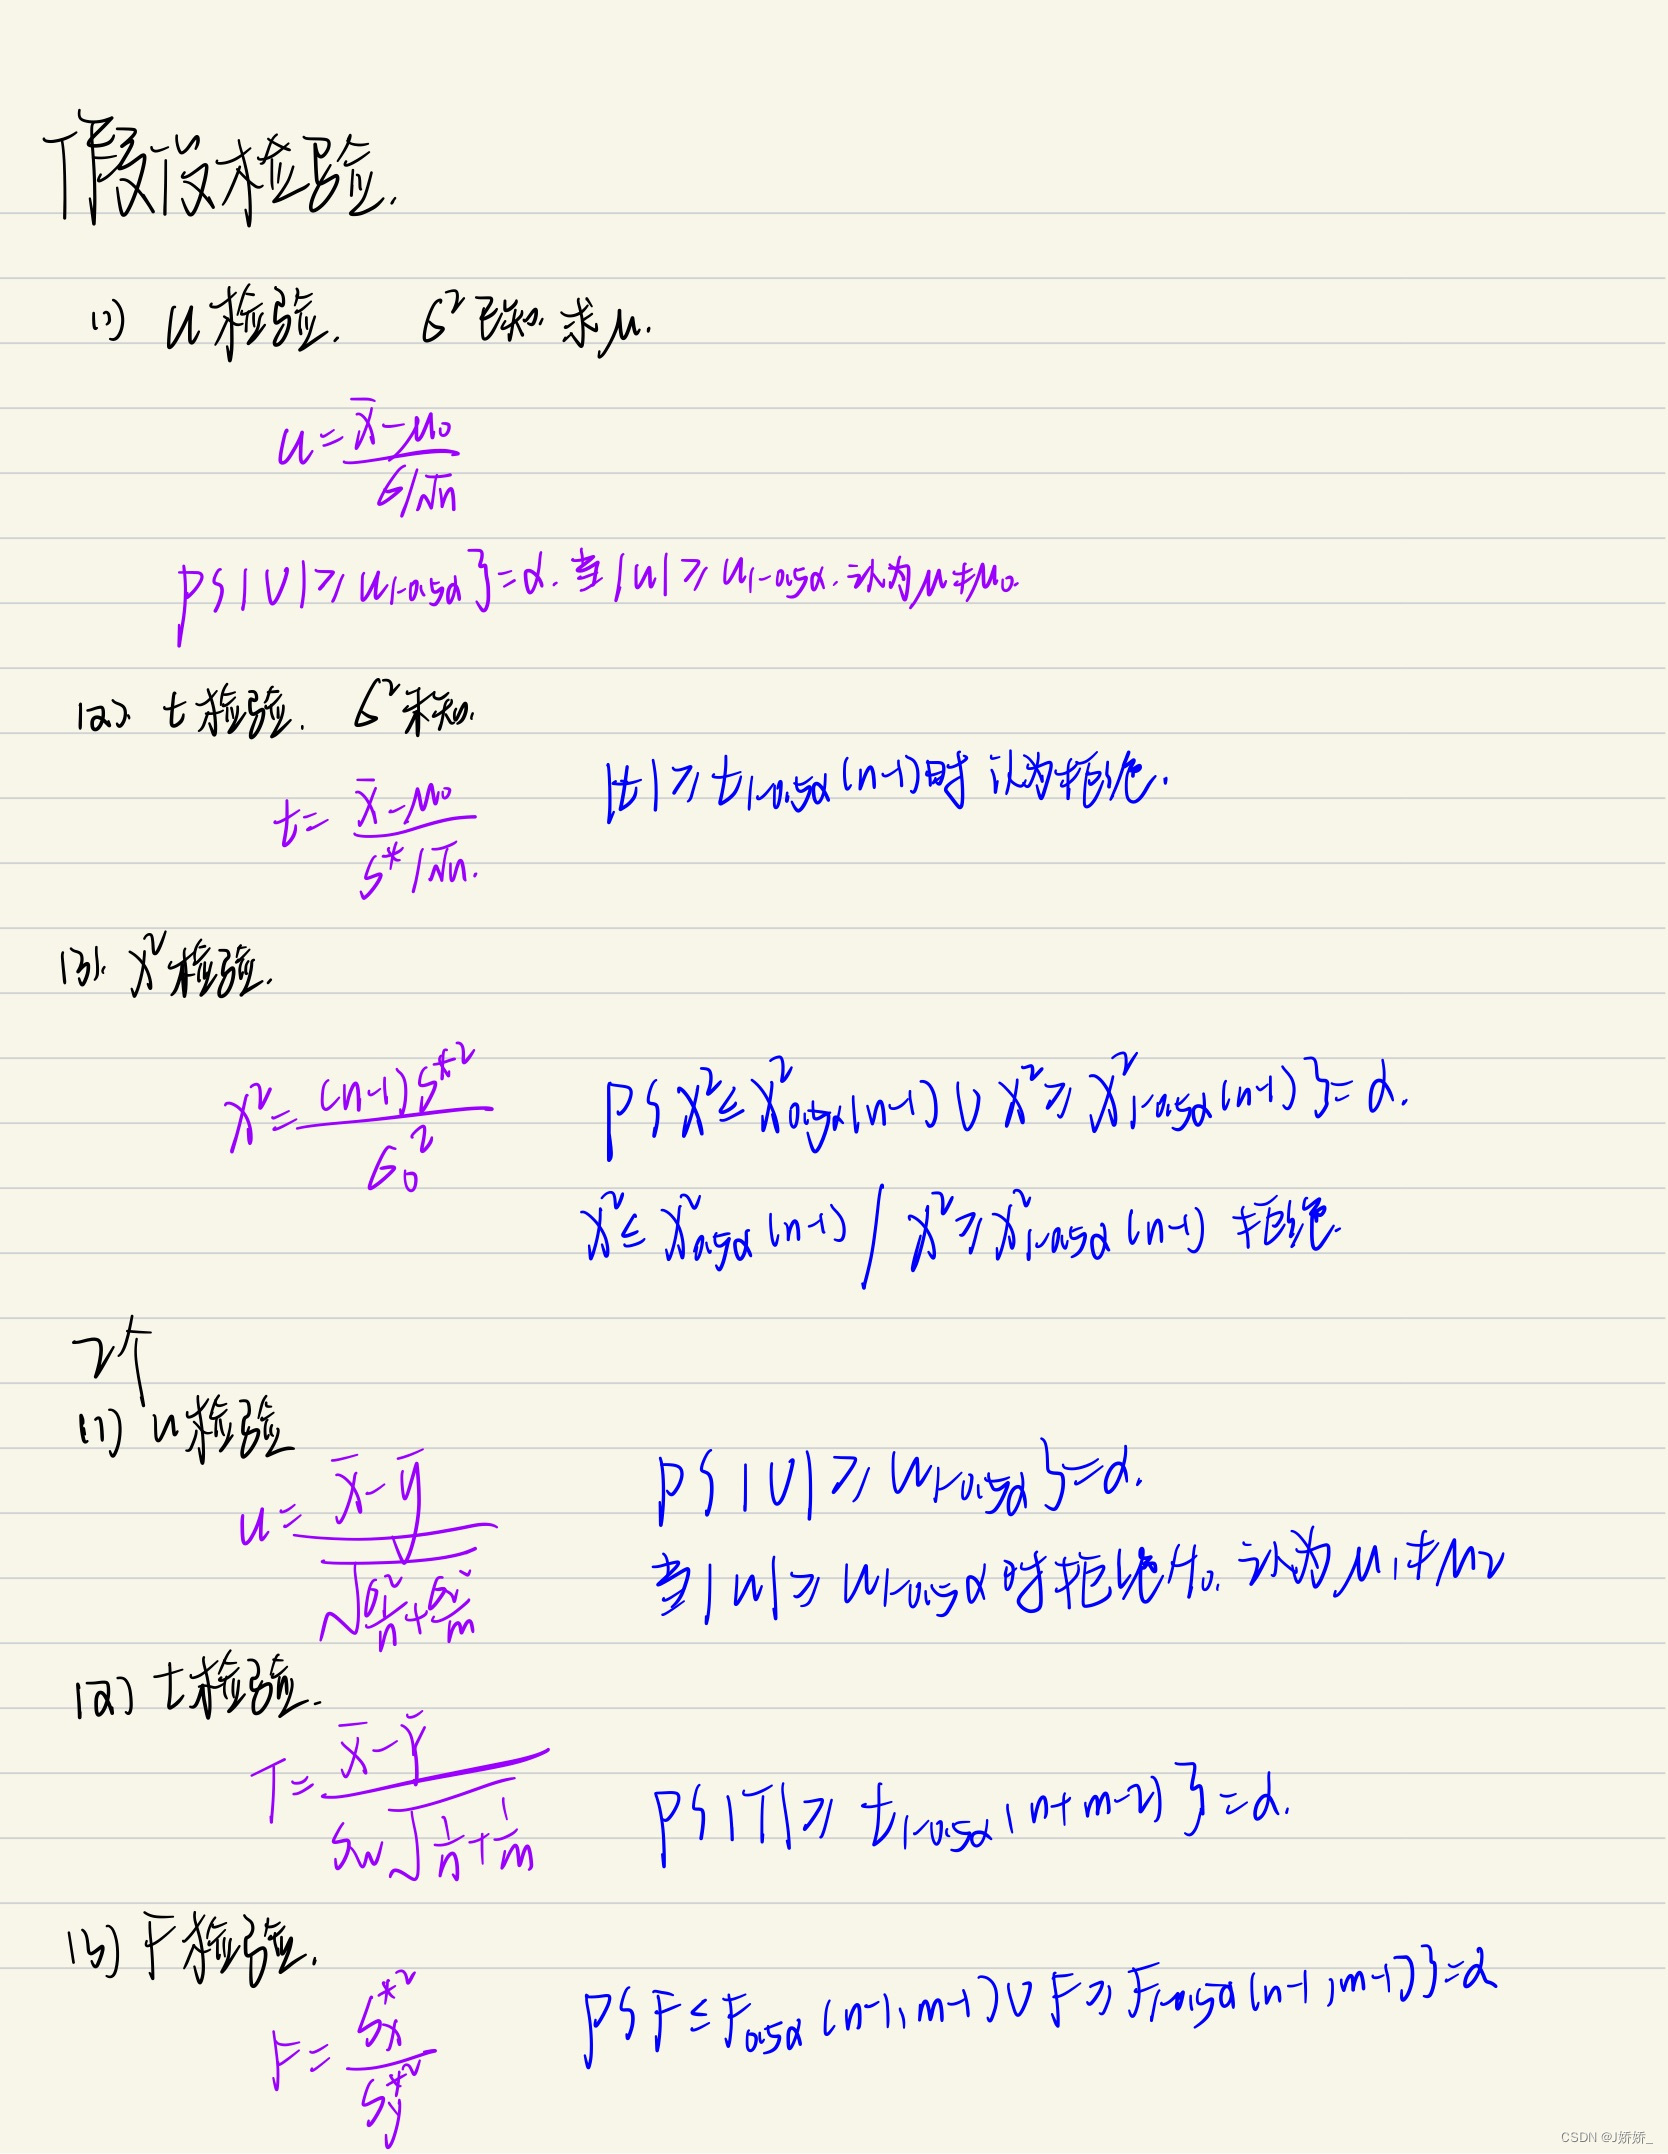 假设检验.
(1) u检验. σ²已知.求μ.
u=(x̄-μ₀)/(σ/√n)
P{|U|≥u_{1-0.5α}}=α.当|u|≥u_{1-0.5α}.认为μ≠μ₀.
(2). t检验. σ²未知.
t=(x̄-μ₀)/(S*/√n). |t|≥t_{1-0.5α}(n-1)时 认为拒绝.
(3). χ²检验.
χ²=(n-1)S*²/σ₀² P{χ²≤χ²_{0.5α}(n-1)∪χ²≥χ²_{1-0.5α}(n-1)}=α.
χ²≤χ²_{0.5α}(n-1) / χ²≥χ²_{1-0.5α}(n-1) 拒绝.
2个
(1) u检验
u=(x̄-ȳ)/√(σ₁²/n+σ₂²/m) P{|U|≥u_{1-0.5α}}=α.
当|u|≥u_{1-0.5α}时拒绝H₀.认为μ₁≠μ₂
(2) t检验.
T=(x̄-Ȳ)/(S_w√(1/n+1/m)) P{|T|≥t_{1-0.5α}(n+m-2)}=α.
(3) F检验.
F=S_x*²/S_y*² P{F≤F_{0.5α}(n-1,m-1)∪F≥F_{1-0.5α}(n-1,m-1)}=α
CSDN @J娇娇_